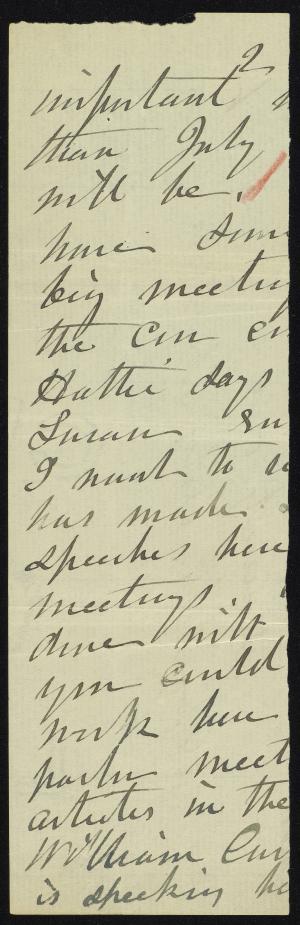 2
important
than July
will be,
have some
big meeting
the Con
Hattie says
Susan
I want to
has made
speeches here
meetings.
done with
you could
work here
parlor meet
articles in the
William Cur
is speeking